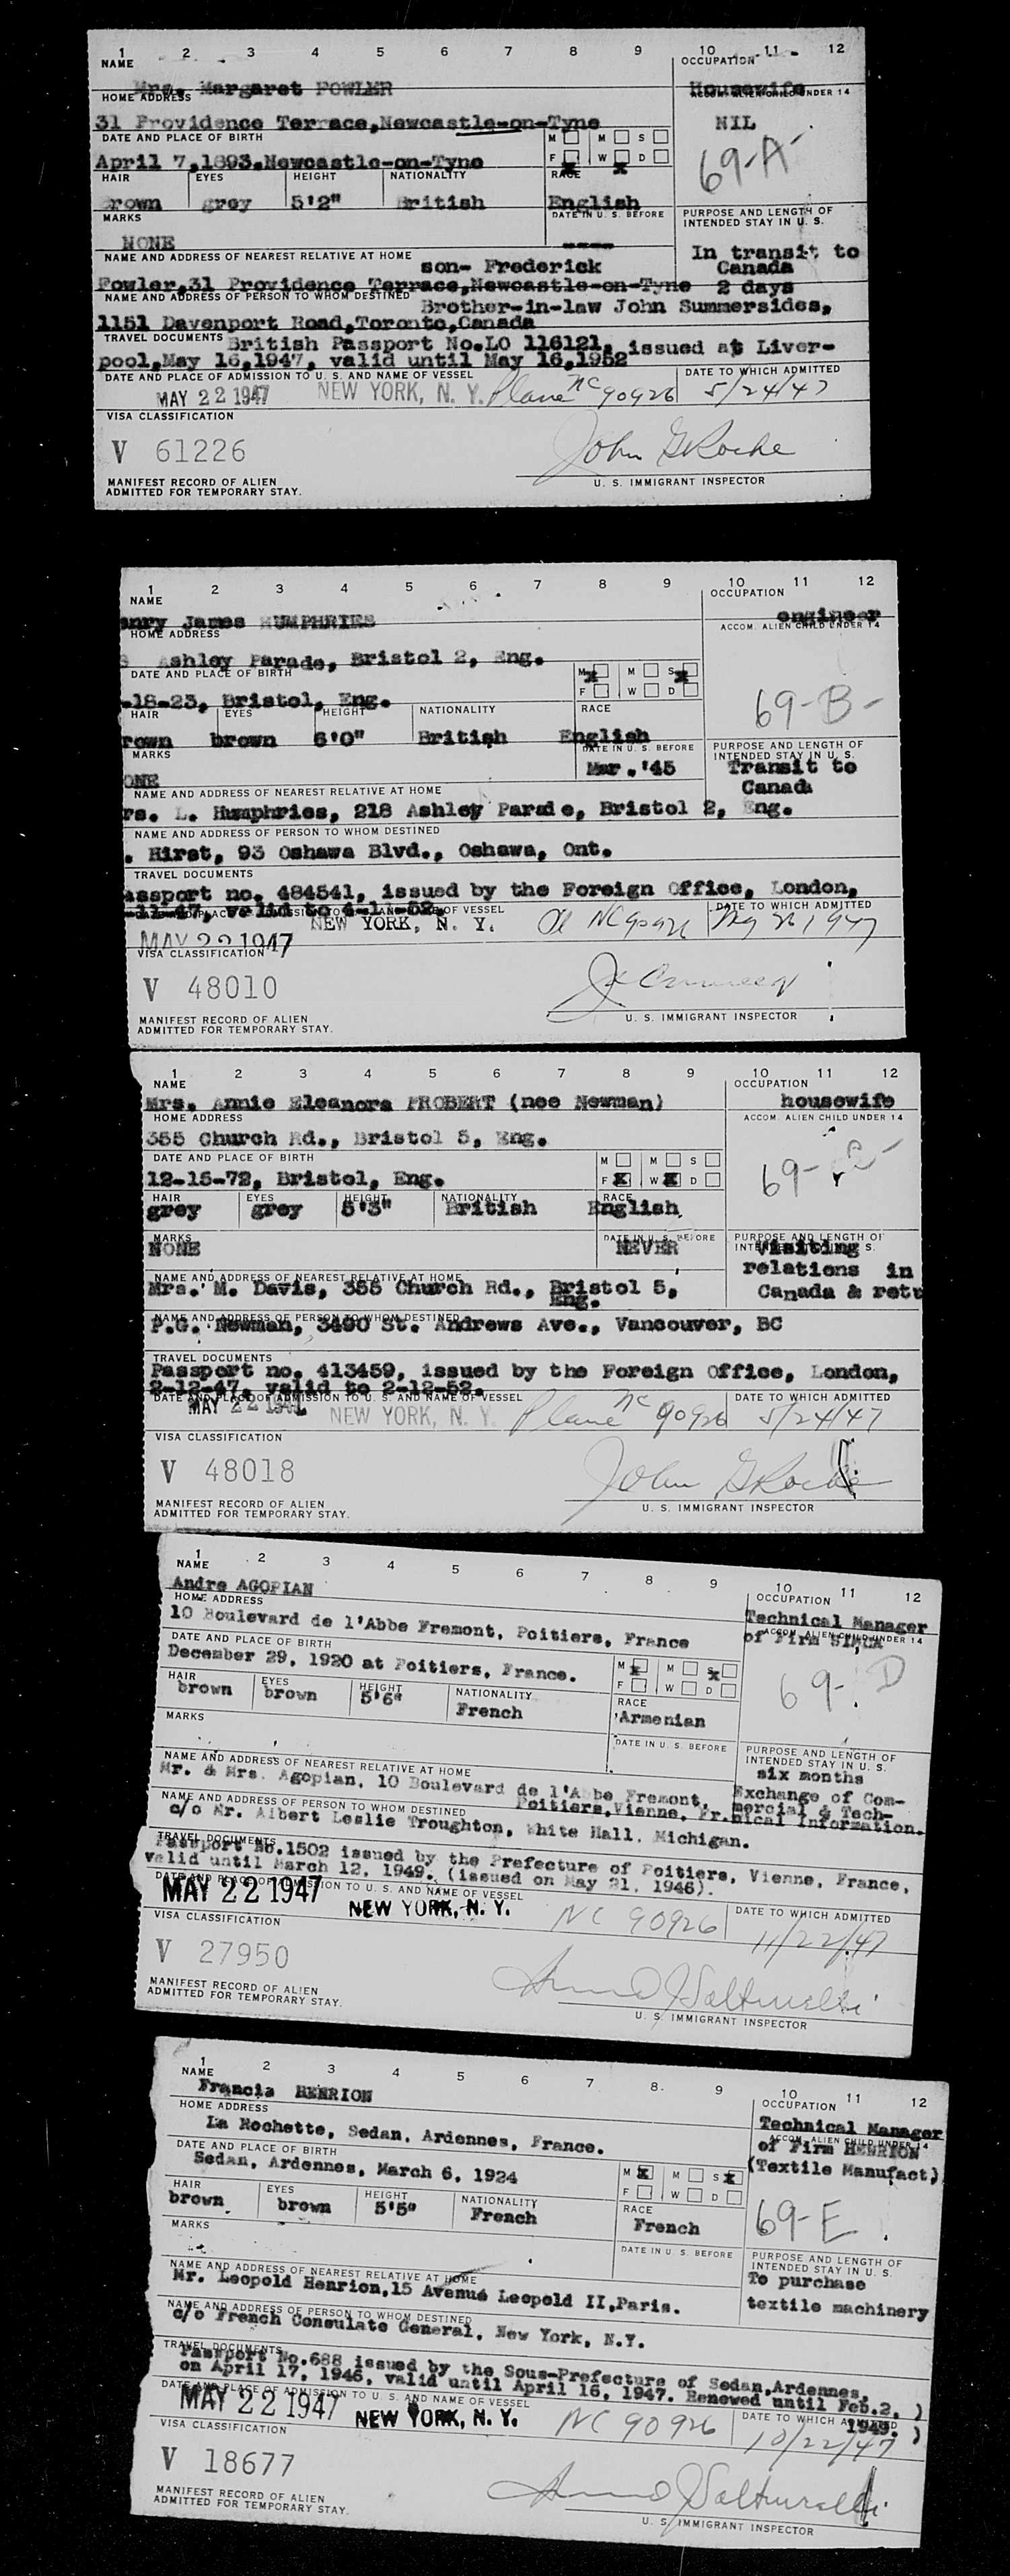 1 2 3 4 5 6 7 8 9 10 11 12
NAME OCCUPATION
Mrs. Margaret FOWLER Housewife
HOME ADDRESS ACCOM. ALIEN CHILD UNDER 14
31 Providence Terrace,Newcastle-on-Tyne NIL
DATE AND PLACE OF BIRTH M M S
April 7,1893.Newcastle-on-Tyne F X W X D 69-A-
HAIR EYES HEIGHT NATIONALITY RACE
Brown grey 5'2" British English
MARKS DATE IN U. S. BEFORE PURPOSE AND LENGTH OF INTENDED STAY IN U. S.
NONE ---- In transit to Canada
NAME AND ADDRESS OF NEAREST RELATIVE AT HOME
son- Frederick
Fowler,31 Providence Terrace,Newcastle-on-Tyne 2 days
NAME AND ADDRESS OF PERSON TO WHOM DESTINED
Brother-in-law John Summersides,
1151 Davenport Road,Toronto,Canada
TRAVEL DOCUMENTS British Passport No.LO 116121, issued at Liver-
pool,May 16,1947, valid until May 16,1952
DATE AND PLACE OF ADMISSION TO U. S. AND NAME OF VESSEL DATE TO WHICH ADMITTED
MAY 22 1947 NEW YORK, N. Y. Plane NC 90926 5/24/47
VISA CLASSIFICATION
V 61226 John G Roche
MANIFEST RECORD OF ALIEN ADMITTED FOR TEMPORARY STAY. U. S. IMMIGRANT INSPECTOR
1 2 3 4 5 6 7 8 9 10 11 12
NAME OCCUPATION
enry James HUMPHRIES engineer
HOME ADDRESS ACCOM. ALIEN CHILD UNDER 14
Ashley Parade, Bristol 2, Eng.
DATE AND PLACE OF BIRTH M X M S X
-18-23, Bristol, Eng. F W D 69-B-
HAIR EYES HEIGHT NATIONALITY RACE
rown brown 6'0" British English
MARKS DATE IN U. S. BEFORE PURPOSE AND LENGTH OF INTENDED STAY IN U. S.
ONE Mar.'45 Transit to Canada
NAME AND ADDRESS OF NEAREST RELATIVE AT HOME
rs. L. Humphries, 218 Ashley Parade, Bristol 2, Eng.
NAME AND ADDRESS OF PERSON TO WHOM DESTINED
. Hirst, 93 Oshawa Blvd., Oshawa, Ont.
TRAVEL DOCUMENTS
assport no. 484541, issued by the Foreign Office, London,
valid to
DATE AND PLACE OF ADMISSION TO U. S. AND NAME OF VESSEL DATE TO WHICH ADMITTED
MAY 22 1947 NEW YORK, N. Y. NC 90926 1947
VISA CLASSIFICATION
V 48010
MANIFEST RECORD OF ALIEN ADMITTED FOR TEMPORARY STAY. U. S. IMMIGRANT INSPECTOR
1 2 3 4 5 6 7 8 9 10 11 12
NAME OCCUPATION
Mrs. Annie Eleanora PROBERT (nee Newman) housewife
HOME ADDRESS ACCOM. ALIEN CHILD UNDER 14
355 Church Rd., Bristol 5, Eng.
DATE AND PLACE OF BIRTH M M S
12-15-72, Bristol, Eng. F X W X D 69-C-
HAIR EYES HEIGHT NATIONALITY RACE
grey grey 5'3" British English
MARKS DATE IN U. S. BEFORE PURPOSE AND LENGTH OF INTENDED STAY IN U. S.
NONE NEVER Visiting relations in Canada & retu
NAME AND ADDRESS OF NEAREST RELATIVE AT HOME
Mrs. M. Davis, 355 Church Rd., Bristol 5, Eng.
NAME AND ADDRESS OF PERSON TO WHOM DESTINED
P.G. Newman, 3490 St. Andrews Ave., Vancouver, BC
TRAVEL DOCUMENTS
Passport no. 413459, issued by the Foreign Office, London,
2-12-47, valid to 2-12-52.
DATE AND PLACE OF ADMISSION TO U. S. AND NAME OF VESSEL DATE TO WHICH ADMITTED
MAY 22 1947 NEW YORK, N. Y. Plane NC 90926 5/24/47
VISA CLASSIFICATION
V 48018 John G Roche
MANIFEST RECORD OF ALIEN ADMITTED FOR TEMPORARY STAY. U. S. IMMIGRANT INSPECTOR
1 2 3 4 5 6 7 8 9 10 11 12
NAME OCCUPATION
Andre AGOPIAN Technical Manager
HOME ADDRESS ACCOM. ALIEN CHILD UNDER 14
10 Boulevard de l'Abbe Fremont, Poitiers, France of Firm SIMCA
DATE AND PLACE OF BIRTH M X M S X
December 29, 1920 at Poitiers, France. F W D 69-D
HAIR EYES HEIGHT NATIONALITY RACE
brown brown 5'6" French Armenian
MARKS DATE IN U. S. BEFORE PURPOSE AND LENGTH OF INTENDED STAY IN U. S.
six months
NAME AND ADDRESS OF NEAREST RELATIVE AT HOME Exchange of Com-
Mr. & Mrs. Agopian, 10 Boulevard de l'Abbe Fremont, mercial & Tech-
Poitiers,Vienne, Fr. nical Information.
NAME AND ADDRESS OF PERSON TO WHOM DESTINED
c/o Mr. Albert Leslie Troughton, White Hall, Michigan.
TRAVEL DOCUMENTS
Passport No.1502 issued by the Prefecture of Poitiers, Vienne, France,
valid until March 12, 1949. (issued on May 21, 1946).
DATE AND PLACE OF ADMISSION TO U. S. AND NAME OF VESSEL DATE TO WHICH ADMITTED
MAY 22 1947 NEW YORK, N. Y. NC 90926 11/22/47
VISA CLASSIFICATION
V 27950
MANIFEST RECORD OF ALIEN ADMITTED FOR TEMPORARY STAY. U. S. IMMIGRANT INSPECTOR
1 2 3 4 5 6 7 8 9 10 11 12
NAME OCCUPATION
Francis HENRION Technical Manager
HOME ADDRESS ACCOM. ALIEN CHILD UNDER 14
La Rochette, Sedan, Ardennes, France. of Firm HENRION
DATE AND PLACE OF BIRTH (Textile Manufact)
Sedan, Ardennes, March 6, 1924 M X M S X F W D
HAIR EYES HEIGHT NATIONALITY RACE 69-E
brown brown 5'5" French French
MARKS DATE IN U. S. BEFORE PURPOSE AND LENGTH OF INTENDED STAY IN U. S.
NAME AND ADDRESS OF NEAREST RELATIVE AT HOME To purchase
Mr. Leopold Henrion,15 Avenue Leopold II,Paris. textile machinery
NAME AND ADDRESS OF PERSON TO WHOM DESTINED
c/o French Consulate General, New York, N.Y.
TRAVEL DOCUMENTS
Passport No.688 issued by the Sous-Prefecture of Sedan,Ardennes,
on April 17, 1946, valid until April 16, 1947. Renewed until Feb.2, )
1949. )
DATE AND PLACE OF ADMISSION TO U. S. AND NAME OF VESSEL DATE TO WHICH ADMITTED
MAY 22 1947 NEW YORK, N. Y. NC 90926 10/22/47
VISA CLASSIFICATION
V 18677
MANIFEST RECORD OF ALIEN ADMITTED FOR TEMPORARY STAY. U. S. IMMIGRANT INSPECTOR